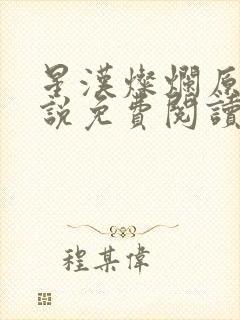 星漢燦爛原
說免費閱讀
程某偉